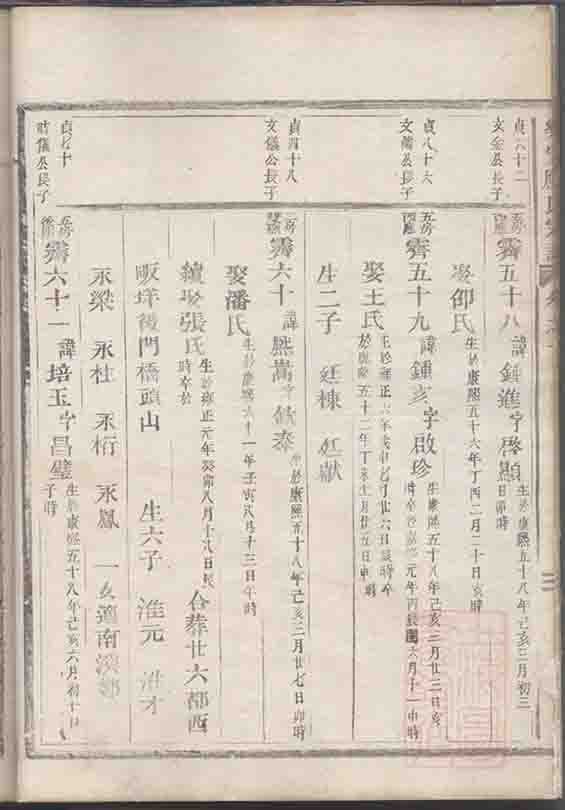 貞六十二
文金公長子
霽五十八 諱鍾進字啓顯 生於康熙五十八年己亥三月初三
日卯時
娶邵氏 生於康熙五十六年丁酉二月二十日亥時
貞八十六
文蘭公長子
五房
霽五十九 諱鍾亥字啟珍 生於康熙五十八年己亥三月廿三日亥
時卒於嘉慶元年丙辰六月十一申時
娶王氏
於乾隆五十二年丁未十月廿五日申時
生二子 廷棟 廷獻
貞四十八
文儀公長子
霽六十 諱熊嵩字 生於康熙五十八年己亥三月廿七日卯時
娶潘氏 生於康熙六十一年壬寅八月十三日午時
續娶張氏 生於雍正元年癸卯八月十八日辰
時卒於
合葬廿六都西
畈垟後門橋頭山 生六子 淮元 淮才
永梁 永杜 永桁 永鳳 一女適南溪鄭
貞七十
時儀公長子
霽六十一 諱培玉字昌璧 生於康熙五十八年己亥六月初十日
子時